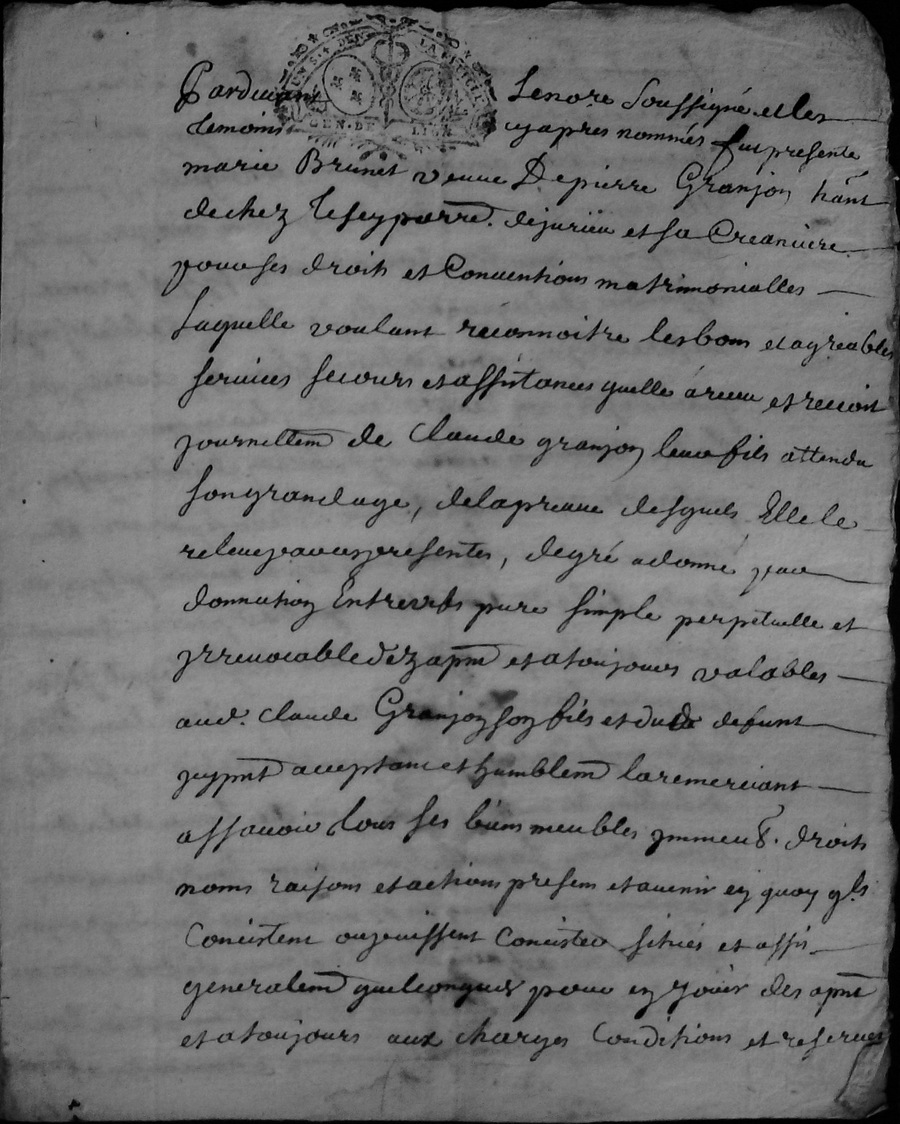 Pardevant Le no.re Soussigné et les
temoins cyapres nommés fut presente
marie Brunet veuve De pierre Granjon hānt
de chez parr̄e. de jurieu et sa Creanciere
pour ses droits et Conventions matrimonialles
Laquelle voulant reconnoitre les bons et agreables
services secours et assistances quelle à receu et recoit
journellem̄ de Claude granjon leur fils attendu
son grand age, de la preuve desquels Elle le
releve par ces presentes, de gré a donné par
donnation Entrevifs pure simple perpetuelle et
yrrevocable dez apn̄t et a toujours valables
aud. Claude Granjon son fils et dud. defunt
jcy pn̄t acceptant et humblem̄ la remerciant
assavoir tous ses biens meubles ymmeub. droits
noms raisons et actions presens et avenir en quoy qls
Concistent ou puissent Concister situés et assis
generalem̄ quelconques pour en jouir des apn̄t
et a toujours aux charges Conditions et reserves
GEN. DE LION